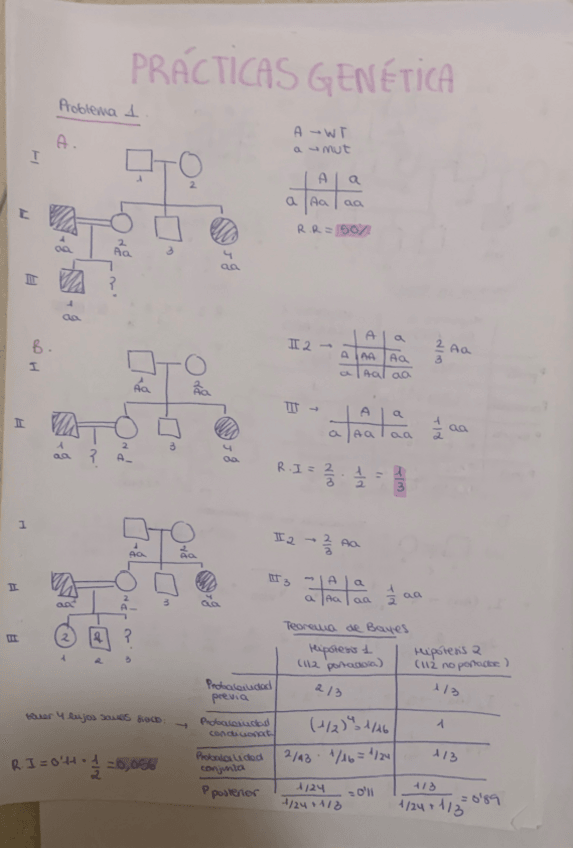 PRÁCTICAS GENÉTICA
Problema 1.
A.
A → WT
a → mut
I
1 2
A a
a Aa aa
R.R = 50%
II
1 2 3 4
aa Aa aa
III
1 ?
aa
B.
I
1 2
Aa Aa
II 2 →
A a
A AA Aa
a Aa aa
2/3 Aa
II
1 ? 2 3 4
aa A_ aa
III →
A a
a Aa aa
1/2 aa
R.I = 2/3 · 1/2 = 1/3
I
1 2
Aa Aa
II 2 → 2/3 Aa
II
aa 2 3 4
A_ aa
III 3 →
A a
a Aa aa
1/2 aa
III
2 2 ?
1 2 3
Teorema de Bayes
Hipótesis 1 Hipótesis 2
(II2 portadora) (II2 no portador)
Probabilidad previa 2/3 1/3
tener 4 hijos sanos →
Probabilidad condicional (1/2)⁴ = 1/16 1
Probabilidad conjunta 2/43 · 1/16 = 1/24 1/3
P posterior 1/24 / 1/24 + 1/3 = 0'11 1/3 / 1/24 + 1/3 = 0'89
R.I = 0'11 · 1/2 = 0,056